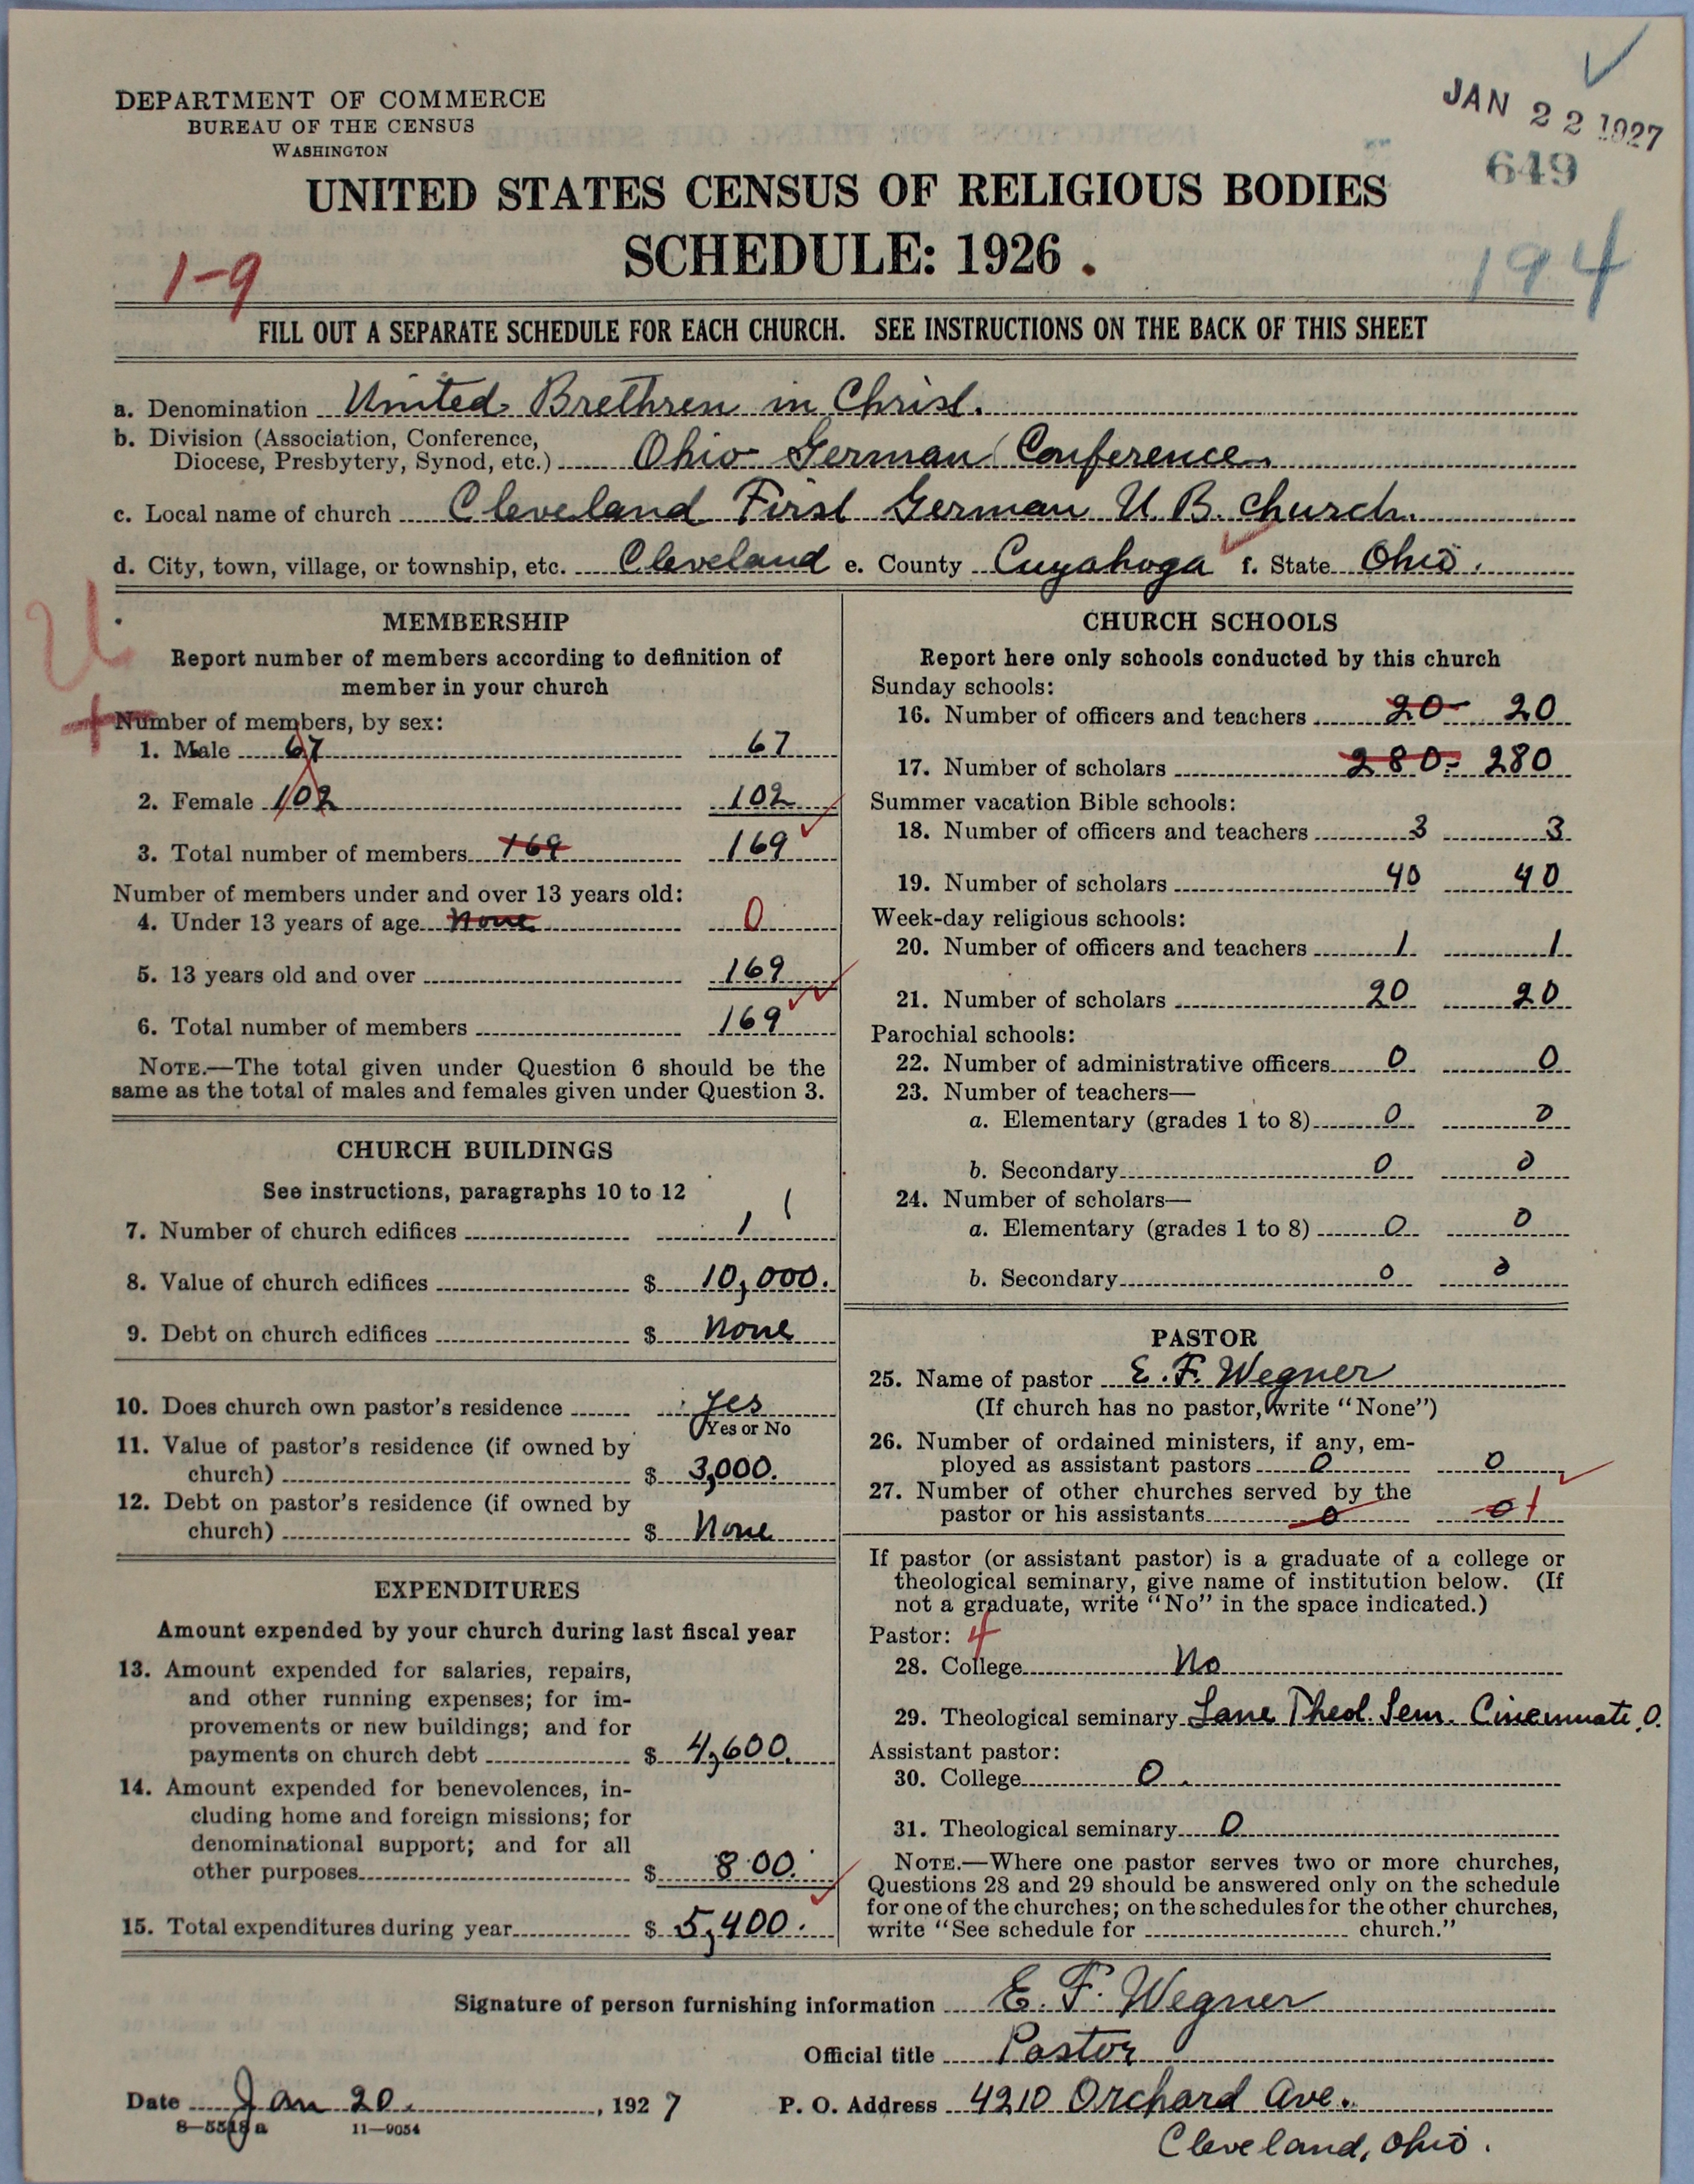 DEPARTMENT OF COMMERCE
BUREAU OF THE CENSUS
WASHINGTON
JAN 22 1927
649
UNITED STATES CENSUS OF RELIGIOUS BODIES
SCHEDULE: 1926
1-9
194
FILL OUT A SEPARATE SCHEDULE FOR EACH CHURCH. SEE INSTRUCTIONS ON THE BACK OF THIS SHEET
a. Denomination United Brethren in Christ.
b. Division (Association, Conference,
Diocese, Presbytery, Synod, etc.) Ohio German Conference.
c. Local name of church Cleveland First German U.B. church.
d. City, town, village, or township, etc. Cleveland e. County Cuyahoga f. State Ohio.
U
MEMBERSHIP
Report number of members according to definition of
member in your church
Number of members, by sex:
1. Male 67 67
2. Female 102 102
3. Total number of members 169 169
Number of members under and over 13 years old:
4. Under 13 years of age none 0
5. 13 years old and over 169
6. Total number of members 169
NOTE.—The total given under Question 6 should be the
same as the total of males and females given under Question 3.
CHURCH BUILDINGS
See instructions, paragraphs 10 to 12
7. Number of church edifices 1 1
8. Value of church edifices $ 10,000.
9. Debt on church edifices $ none
10. Does church own pastor's residence yes
Yes or No
11. Value of pastor's residence (if owned by
church) $ 3,000.
12. Debt on pastor's residence (if owned by
church) $ None
EXPENDITURES
Amount expended by your church during last fiscal year
13. Amount expended for salaries, repairs,
and other running expenses; for im-
provements or new buildings; and for
payments on church debt $ 4,600.
14. Amount expended for benevolences, in-
cluding home and foreign missions; for
denominational support; and for all
other purposes $ 800.
15. Total expenditures during year $ 5,400.
CHURCH SCHOOLS
Report here only schools conducted by this church
Sunday schools:
16. Number of officers and teachers 20 20
17. Number of scholars 280 280
Summer vacation Bible schools:
18. Number of officers and teachers 3 3
19. Number of scholars 40 40
Week-day religious schools:
20. Number of officers and teachers 1 1
21. Number of scholars 20 20
Parochial schools:
22. Number of administrative officers 0 0
23. Number of teachers—
a. Elementary (grades 1 to 8) 0 0
b. Secondary 0 0
24. Number of scholars—
a. Elementary (grades 1 to 8) 0 0
b. Secondary 0 0
PASTOR
25. Name of pastor E. F. Wegner
(If church has no pastor, write "None")
26. Number of ordained ministers, if any, em-
ployed as assistant pastors 0 0
27. Number of other churches served by the
pastor or his assistants 0 0 1
If pastor (or assistant pastor) is a graduate of a college or
theological seminary, give name of institution below. (If
not a graduate, write "No" in the space indicated.)
Pastor: 4
28. College No
29. Theological seminary Lane Theol. Sem. Cincinnati, O.
Assistant pastor:
30. College 0
31. Theological seminary 0
NOTE.—Where one pastor serves two or more churches,
Questions 28 and 29 should be answered only on the schedule
for one of the churches; on the schedules for the other churches,
write "See schedule for church."
Signature of person furnishing information E. F. Wegner
Official title Pastor
Date Jan 20. , 1927 P. O. Address 4210 Orchard Ave.
8—5518 a 11—9054
Cleveland, Ohio.